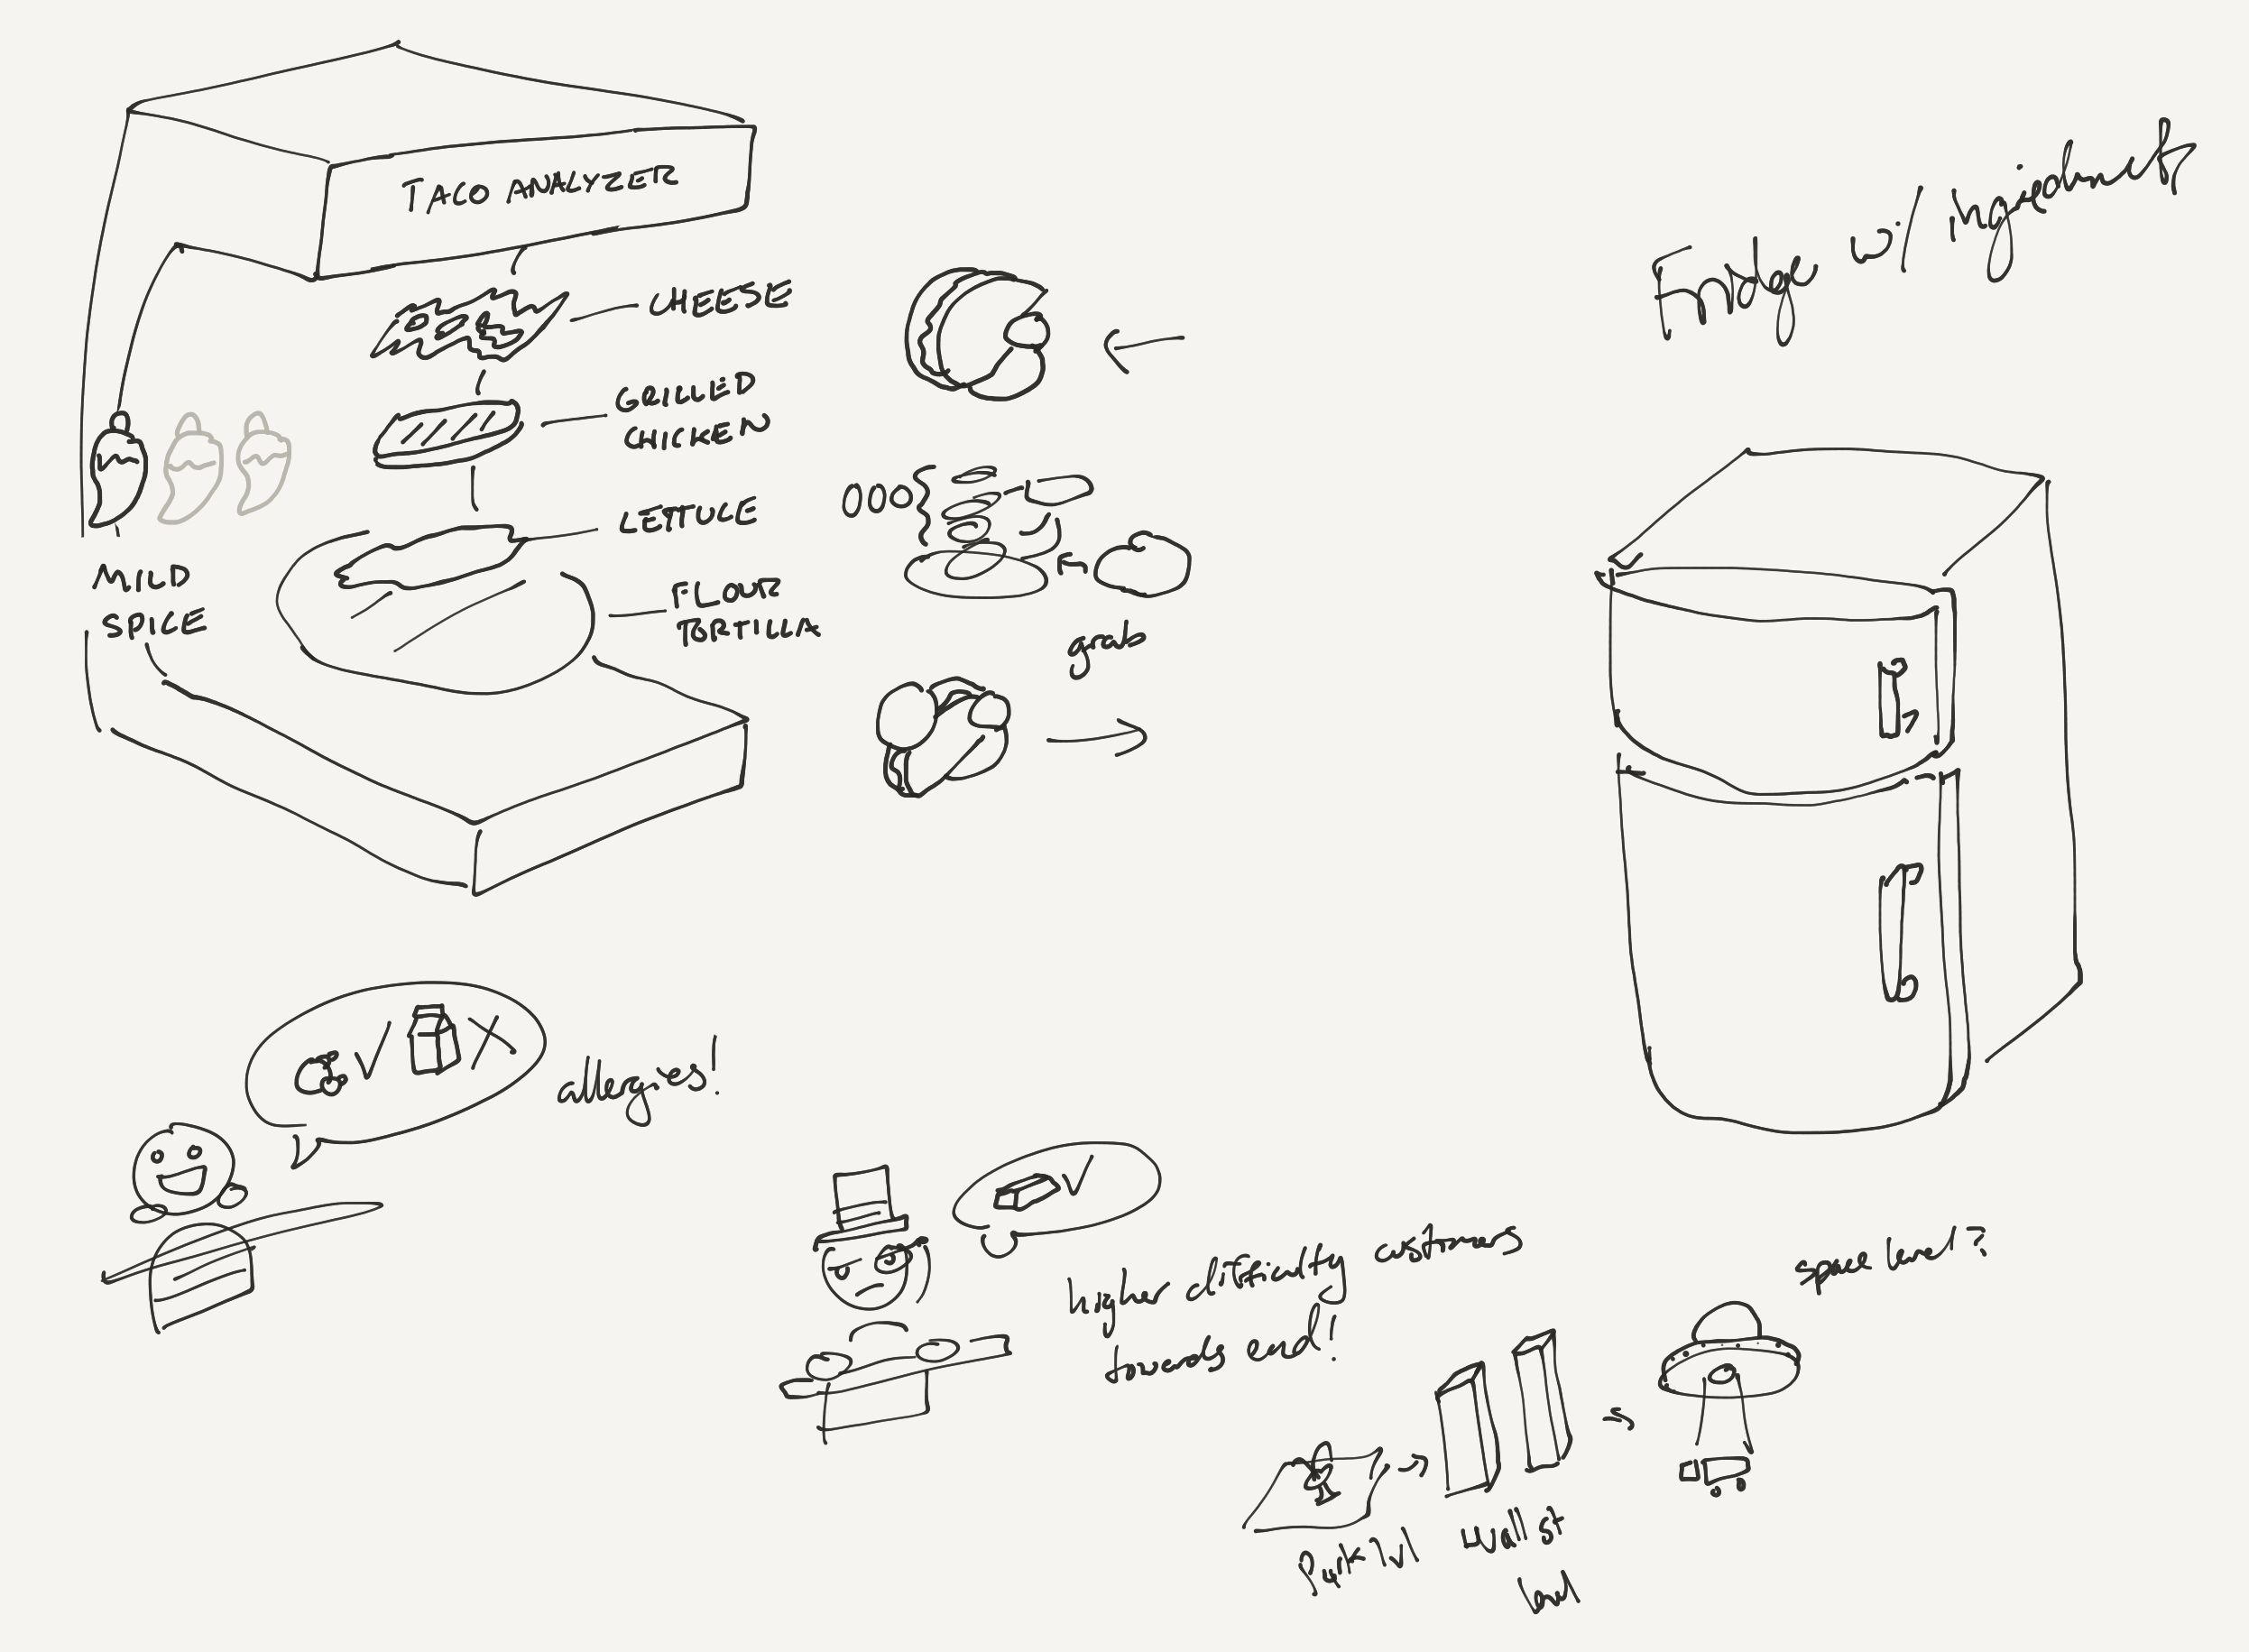 TACO ANALYZER
CHEESE
GRILLED
CHICKEN
LETTUCE
FLOUR
TORTILLA
MILD
SPICE
grab
Fridge w/ ingredients
allergies!
higher difficulty customers
towards end!
space level?
Park lvl
wall st
lvl